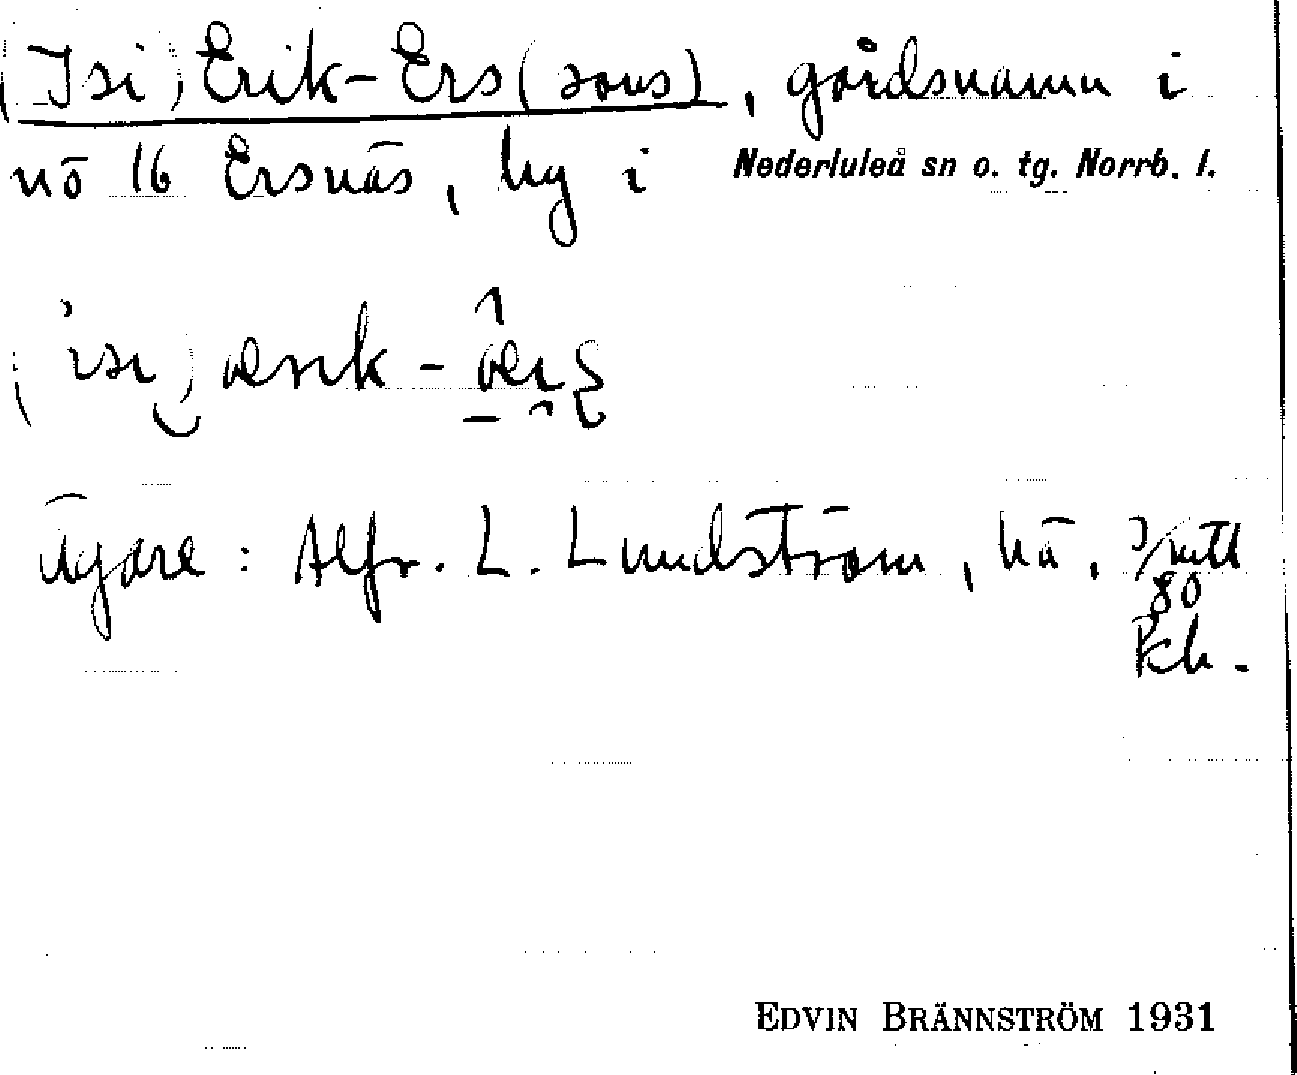 (Isi) Erik-Ers(sons), gårdsnamn i
nō 16 Ersnäs, by i Nederluleå sn o. tg. Norrb. l.
(isi) ærik-
Ägare: Alfr. L. Lundström, hä, 3/mtl
80
EDVIN BRÄNNSTRÖM 1931